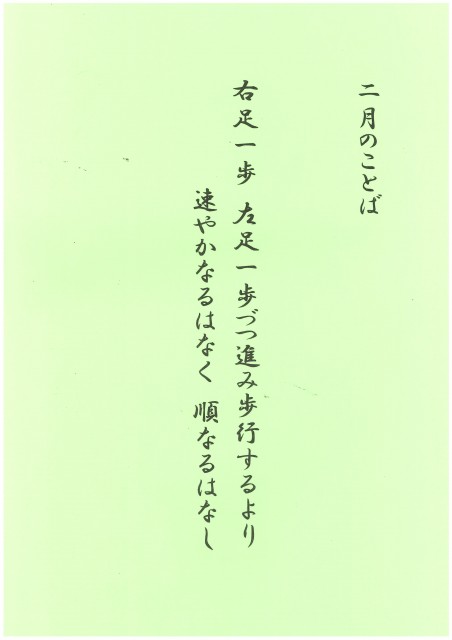 二月のことば
右足一歩 左足一歩づつ進み歩行するより
速やかなるはなく 順なるはなし